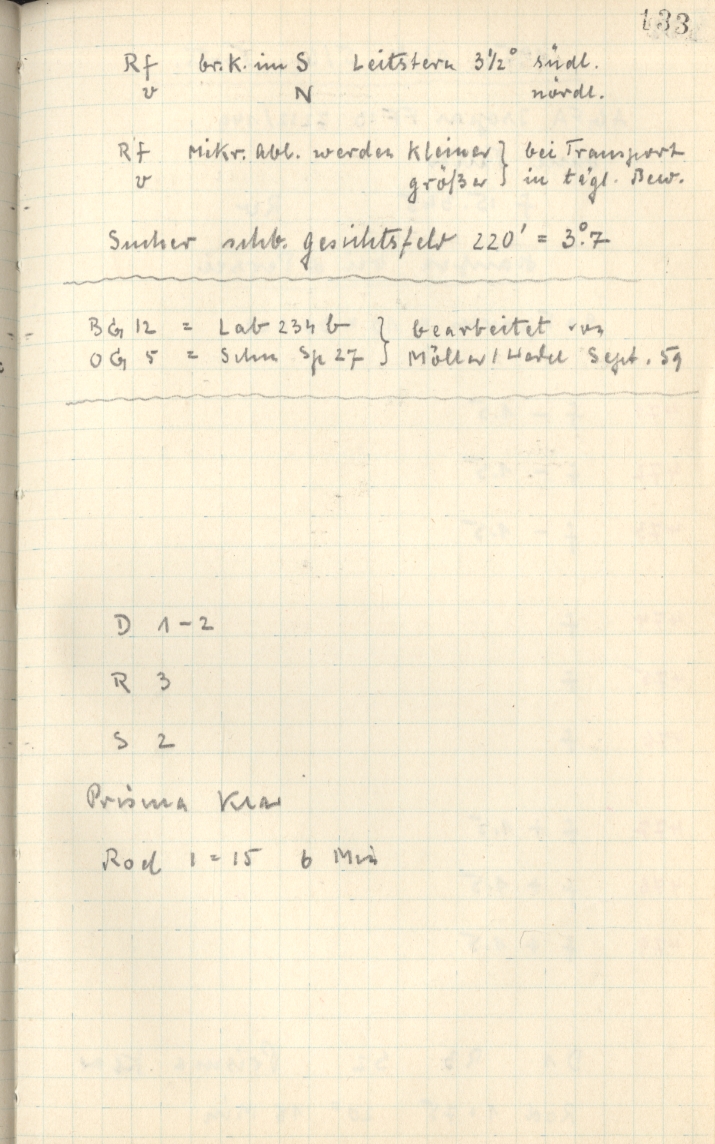 133
Rf br. K. im S Leitstern 3 1/2° südl.
v N nördl.
Rf Mikr. Abl. werden kleiner } bei Transport
v größer } in tägl. Bew.
Sucher schb. Gesichtsfeld 220' = 3°.7
BG 12 = Lab 234 b } bearbeitet von
OG 5 = Schn Sp 27 } Möller / Wedel Sept. 59
D 1-2
R 3
S 2
Prisma klar
Rod 1 = 15 6 Min